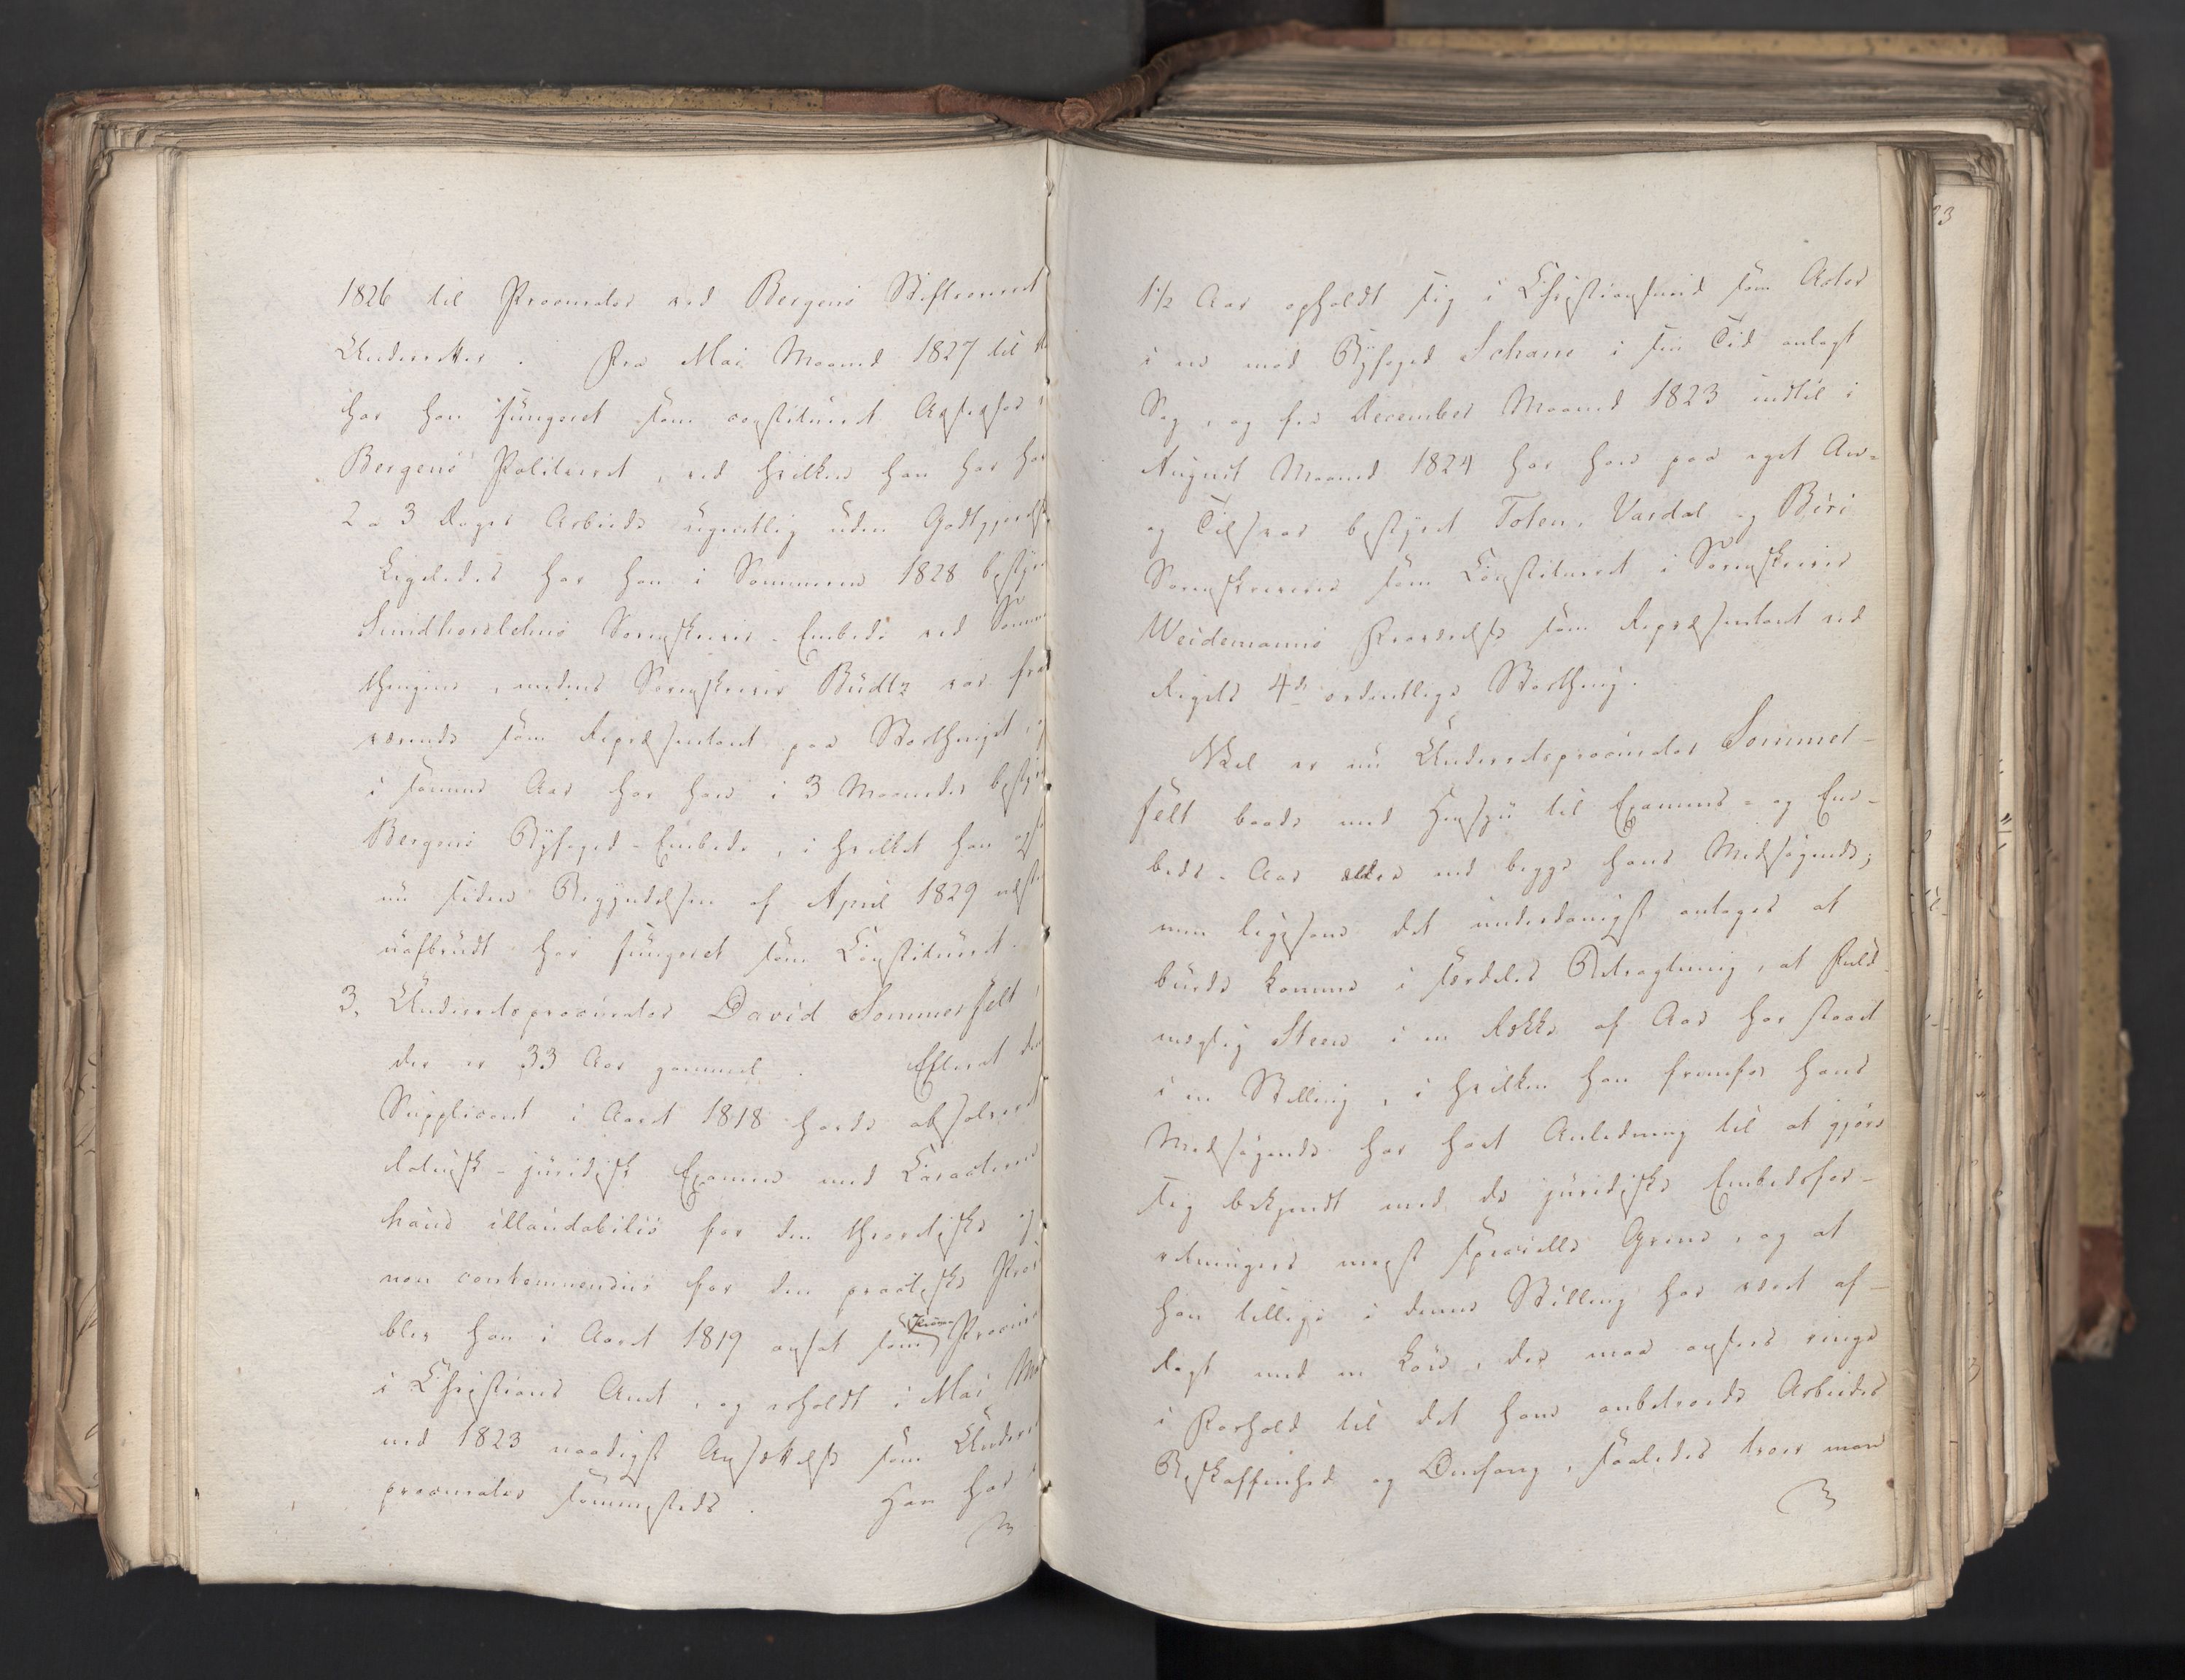 1826 til Procurator ved Bergens Stiftsoverret
Underretter. Fra Mai Maaned 1827 til
har han fungeret som constitueret Assessor i
Bergens Politieret, ved hvilken han har hav
2 a 3 Dages Arbeide ugentlig uden Godtgjørelse,
Ligeledes har han i Sommeren 1828 bestyr
Sundhordlehns Sorenskriver-Embede ved Somm
thingene, medens Sorenskriver Büdtz var fra
værende som Repræsentant paa Storthinget, og
i samme Aar har han i 3 Maaneder bestyr
Bergens Byfoged-Embede, i hvilket han ogsa
nu siden Begyndelsen af April 1829 næsten
uafbrudt har fungeret som Constitueret.
3. Underretsprocurator David Sommerfelt,
der er 33 Aar gammel. Efterat den
Supplicant i Aaret 1818 havde absolveret
Latinsk-juridisk Examen med Caracteren
haud illaudabilis for den theoretiske og
non contemnendus for den practiske Prøv
blev han i Aaret 1819 ansat som Procura
i Christians Amt, og erholdt i Mai Maa
ned 1823 naadigst Ansættelse som Underre
procurator sammesteds. Han har i
1 1/2 Aar opholdt sig i Christiansund som Actor
i en mod Byfoged Schanc i sin Tid anlagt
Sag, og fra December Maaned 1823 indtil i
August Maaned 1824 har han paa eget An-
og Tilsvar bestyret Toten, Vardal og Biri
Sorenskriverie som Constitueret i Sorenskriver
Weidemanns Fraværelse som Repræsentant ved
Rigets 4de ordentlige Storthing.
Vel er nu Underretsprocurator Sommer-
felt baade med Hensyn til Examens- og Em-
beds-Aar ældre end begge hans Medsøgende;
men ligesom det underdanigst antages at
burde komme i særdeles Betragtning, at Fuld-
mægtig Steen i en Række af Aar har staaet
i en Stilling, i hvilken han fremfor hans
Medsøgende har havt Anledning til at gjøre
sig bekjendt med de juridiske Embedsfor-
retningers meest specielle Grene, og at
han tillige i denne Stilling har været af-
lagt med en Løn, der maa ansees ringe
i Forhold til det ham anbetroede Arbeides
Beskaffenhed og Omfang, saaledes troer man